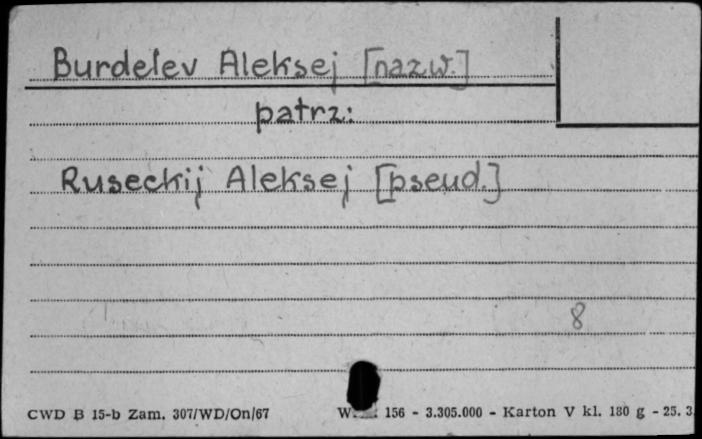 Burdelev Aleksej [nazw.]
patrz:
Ruseckij Aleksej [pseud.]
8
CWD B 15-b Zam. 307/WD/On/67 156 - 3.305.000 - Karton V kl. 180 g - 25. 3